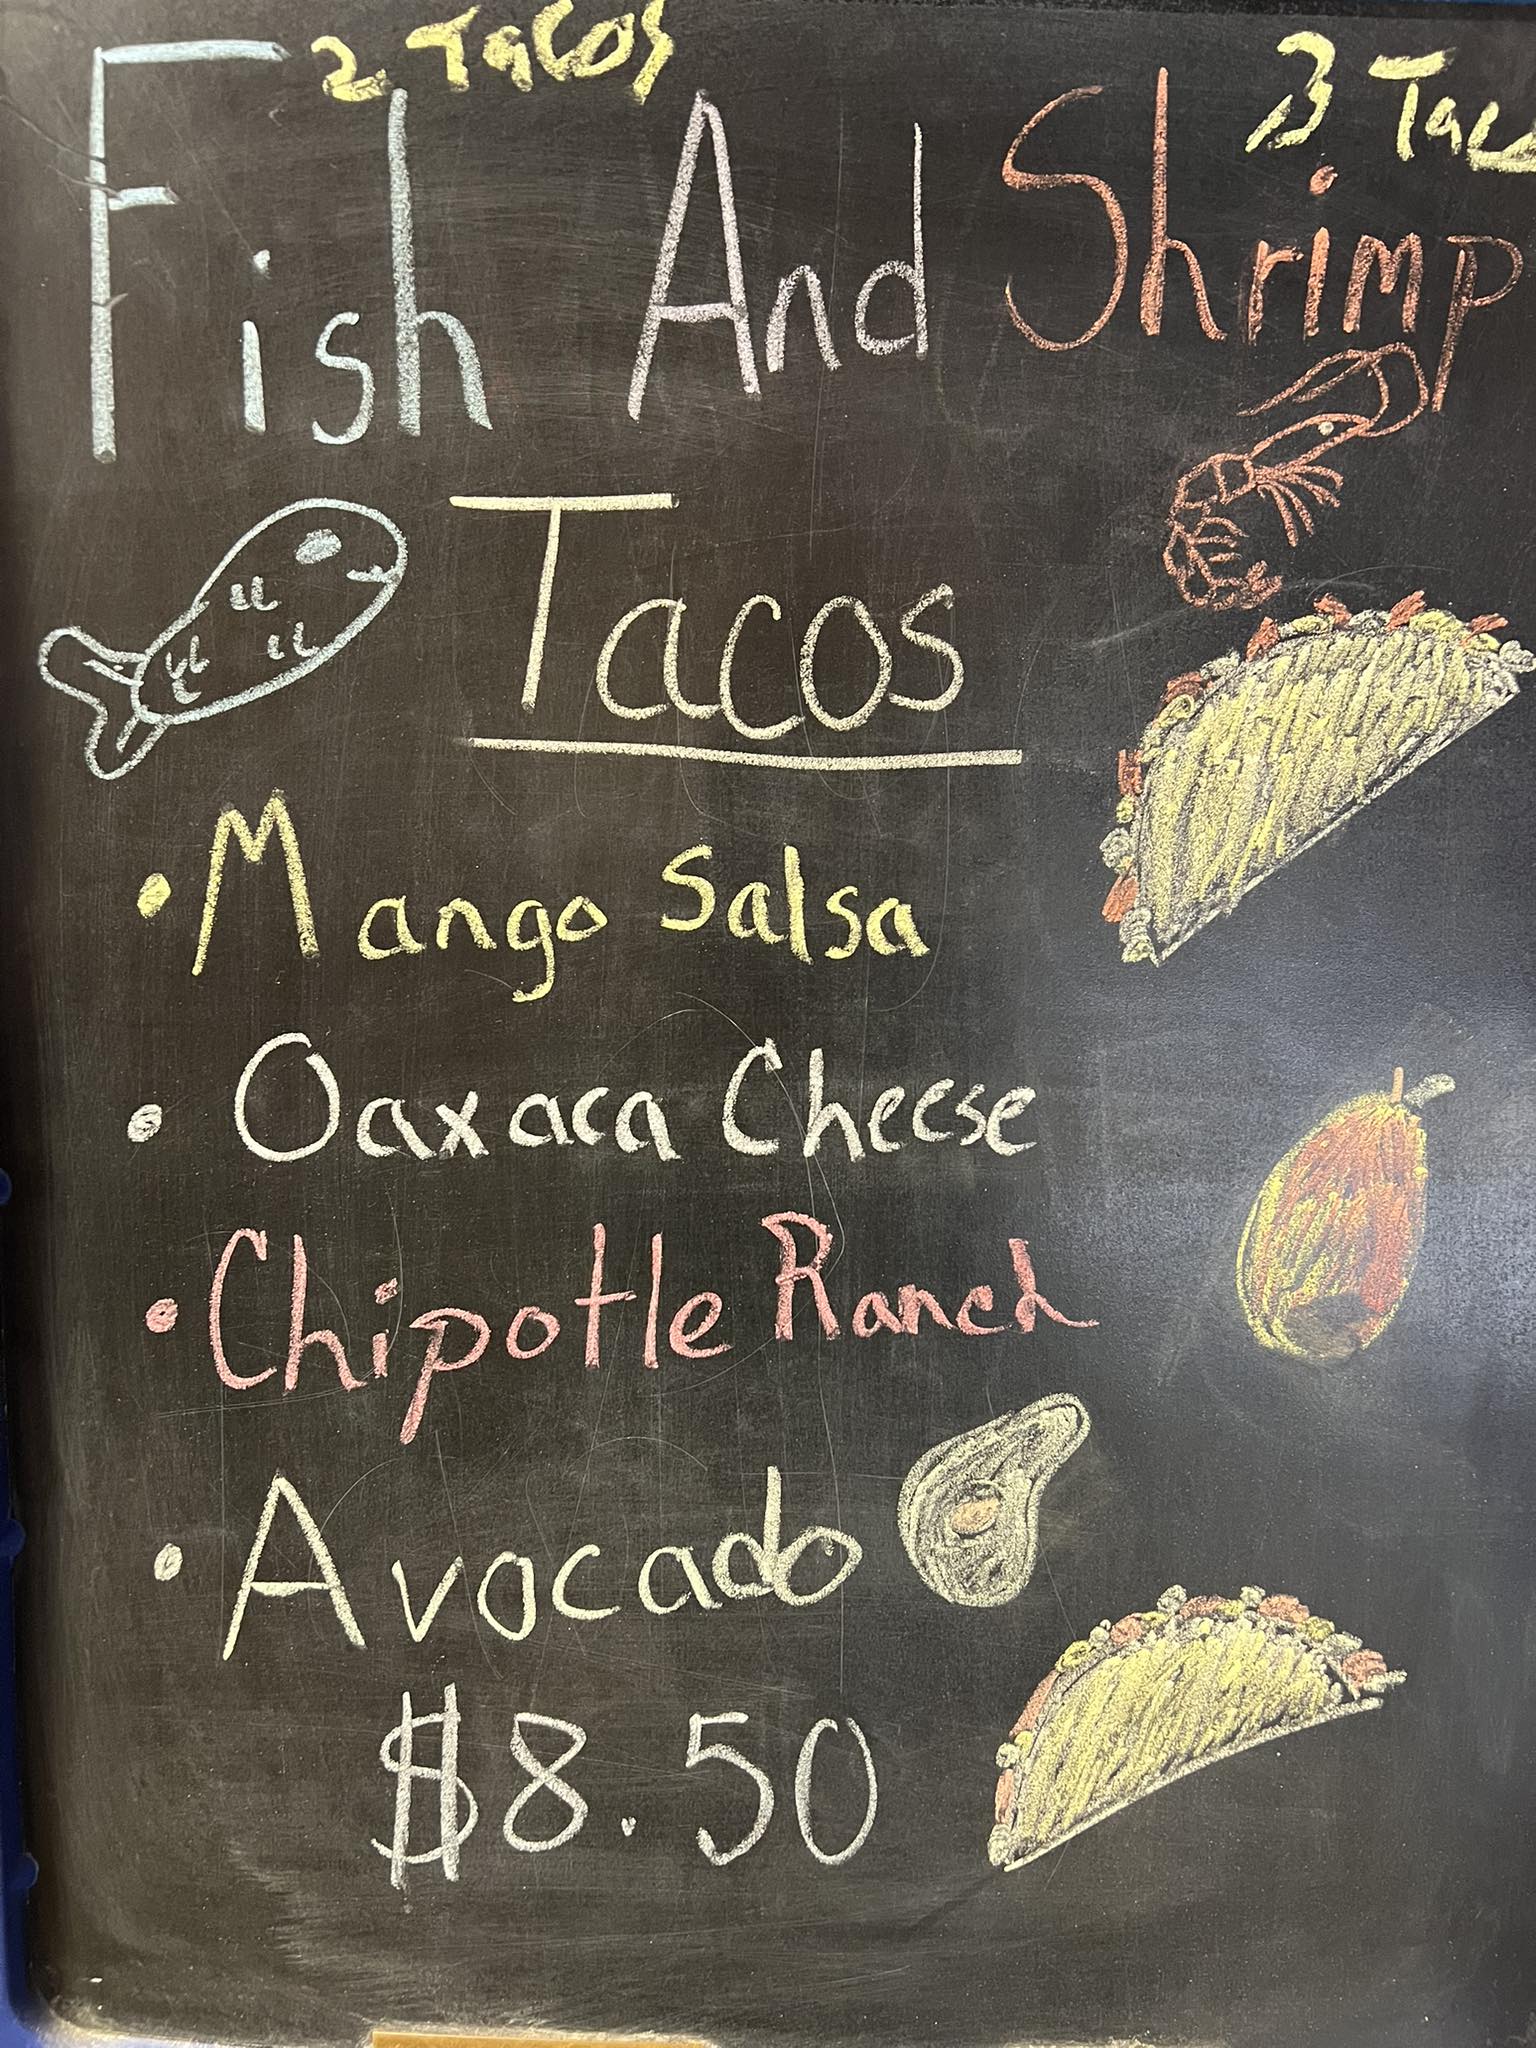 2 Tacos
3 Tac
Fish And Shrimp
Tacos
• Mango Salsa
• Oaxaca Cheese
• Chipotle Ranch
• Avocado
$8.50